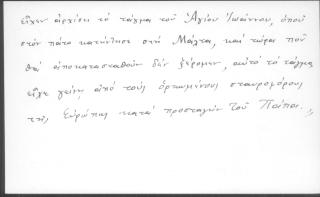 εἶχεν ἀρχίσει τὸ τάγμα τοῦ Ἁγίου Ἰωάννου, ὁποὺ
στὸν πάτο κατήντησε στὴ Μάλτα, καὶ τώρα ποῦ
θὰ ἀποκατασταθοῦν δὲν ξέρομεν, αὐτὸ τὸ τάγμα
εἶχε γείνῃ ἀπὸ τοὺς ὁρκωμένους σταυροφόρους
τῆς Εὐρώπης κατὰ προσταγὴν τοῦ Πάπα.